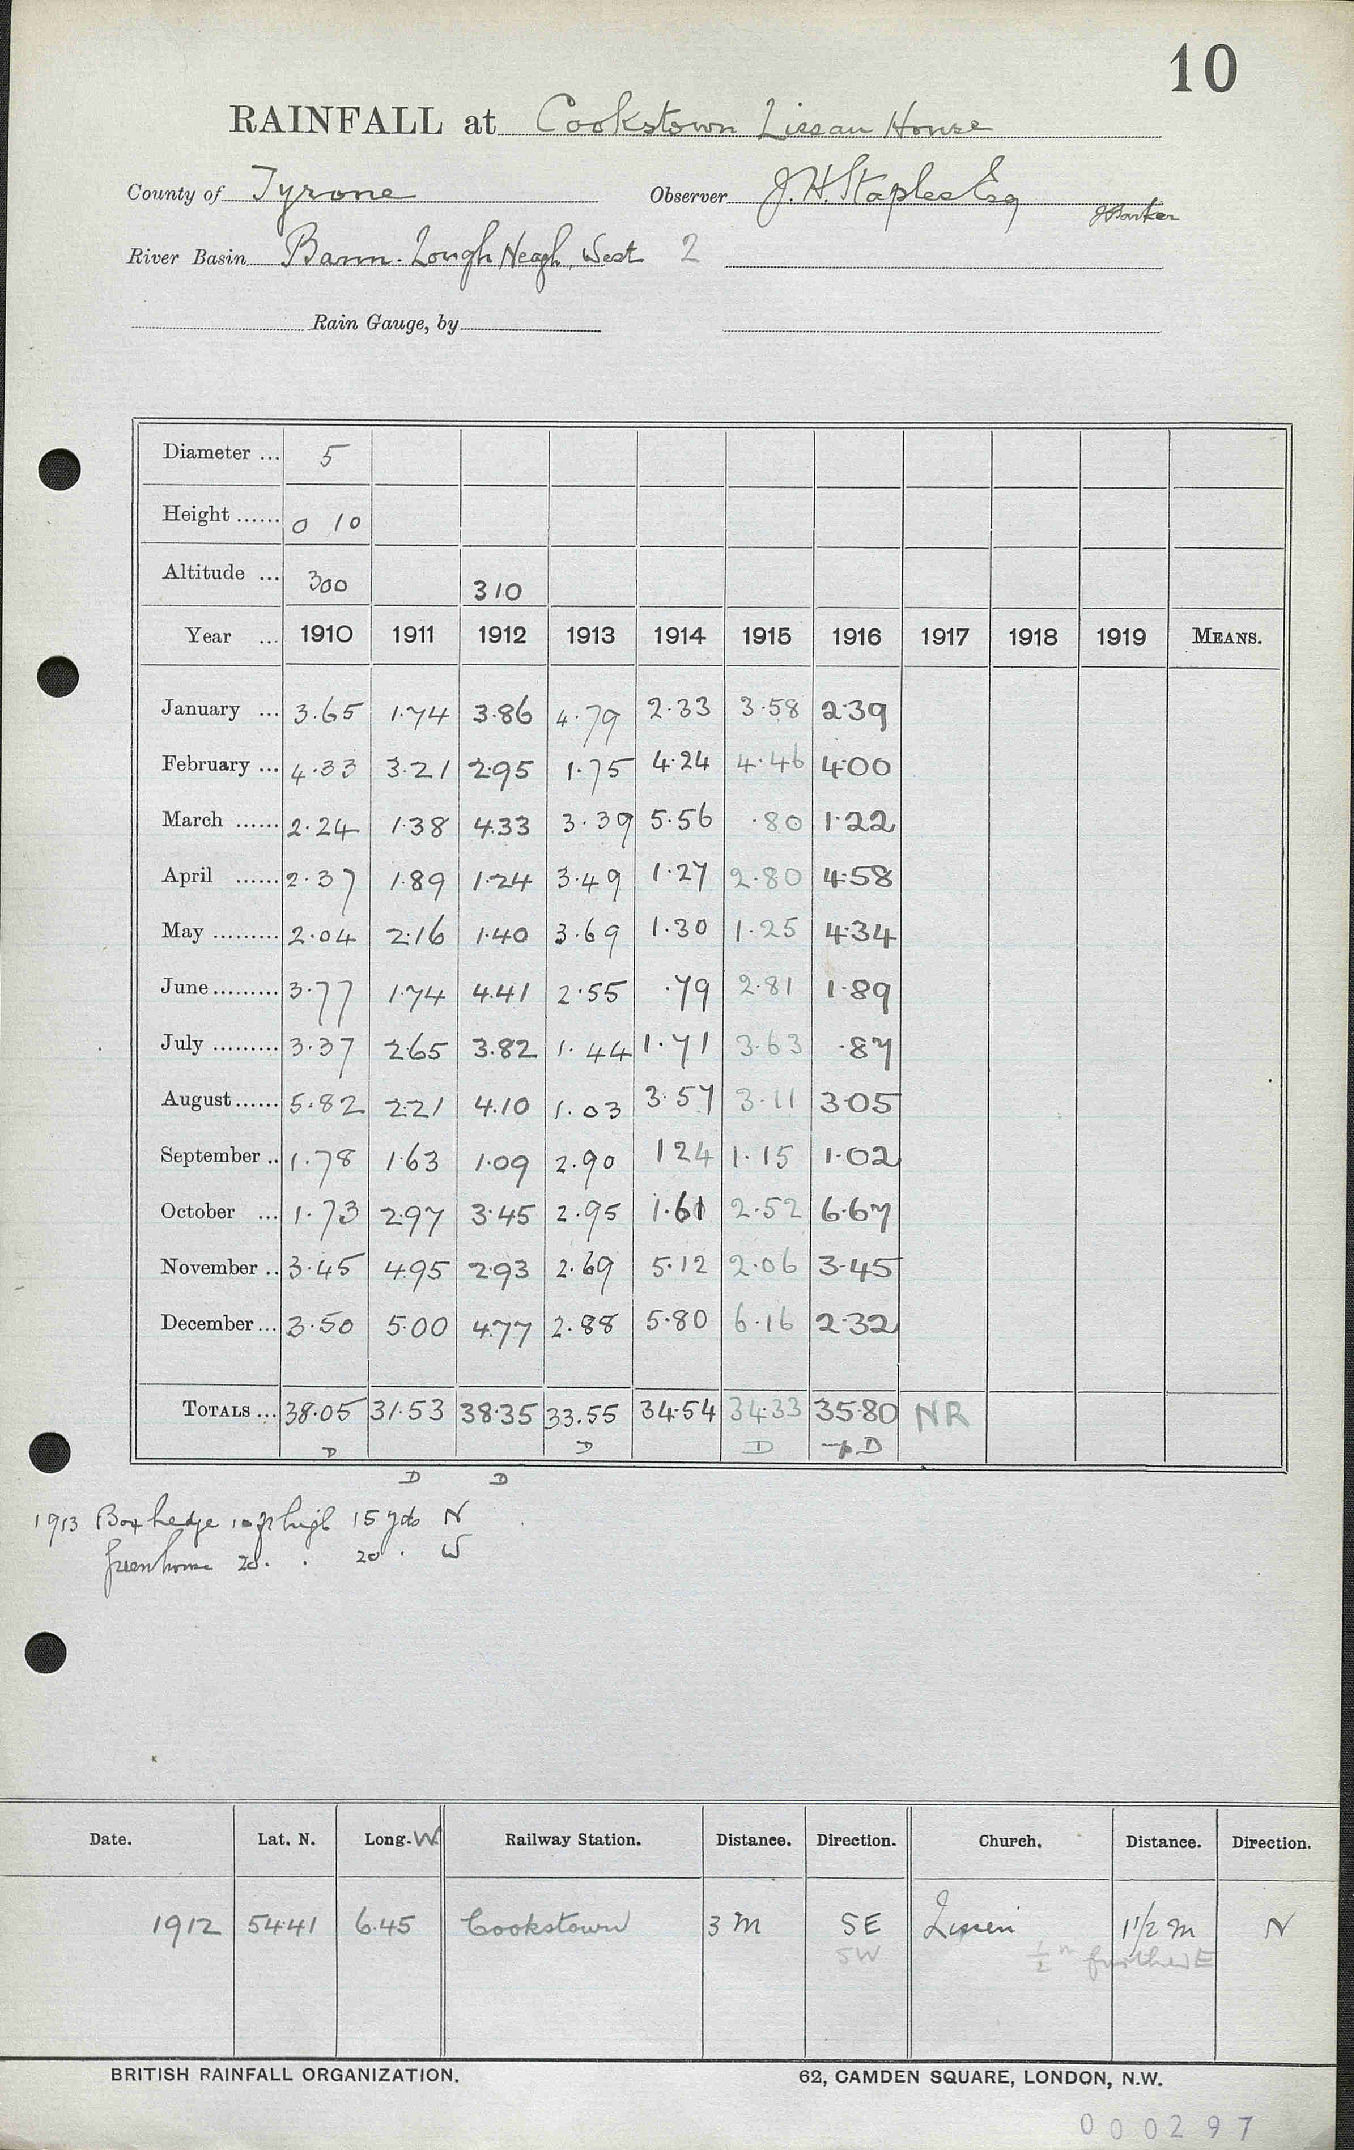 10
RAINFALL at Cookstown Lissan House
County of Tyrone Observer J. H. Staples Esq
J Barker
River Basin Bann. Lough Neagh, West 2
Rain Gauge, by
Diameter ... 5
Height ...... 0 10
Altitude ... 300 310
Year ... 1910 1911 1912 1913 1914 1915 1916 1917 1918 1919 MEANS.
January ... 3.65 1.74 3.86 4.79 2.33 3.58 2.39
February ... 4.33 3.21 2.95 1.75 4.24 4.46 4.00
March ...... 2.24 1.38 4.33 3.39 5.56 .80 1.22
April ...... 2.37 1.89 1.24 3.49 1.27 2.80 4.58
May ......... 2.04 2.16 1.40 3.69 1.30 1.25 4.34
June ......... 3.77 1.74 4.41 2.55 .79 2.81 1.89
July ......... 3.37 2.65 3.82 1.44 1.71 3.63 .87
August ...... 5.82 2.21 4.10 1.03 3.57 3.11 3.05
September .. 1.78 1.63 1.09 2.90 1 24 1.15 1.02
October ... 1.73 2.97 3.45 2.95 1.61 2.52 6.67
November .. 3.45 4.95 2.93 2.69 5.12 2.06 3.45
December ... 3.50 5.00 4.77 2.88 5.80 6.16 2.32
TOTALS ... 38.05 31.53 38.35 33.55 34.54 34.33 35.80 NR
D D D D
D D
1913 Box hedge 10 ft high 15 yds N
Greenhouse 20 . . 20 . W
Date. Lat. N. Long. W Railway Station. Distance. Direction. Church. Distance. Direction.
1912 54.41 6.45 Cookstown 3 m SE 1 1/2 m N
SW 1/2 m further E
BRITISH RAINFALL ORGANIZATION. 62, CAMDEN SQUARE, LONDON, N.W.
000297